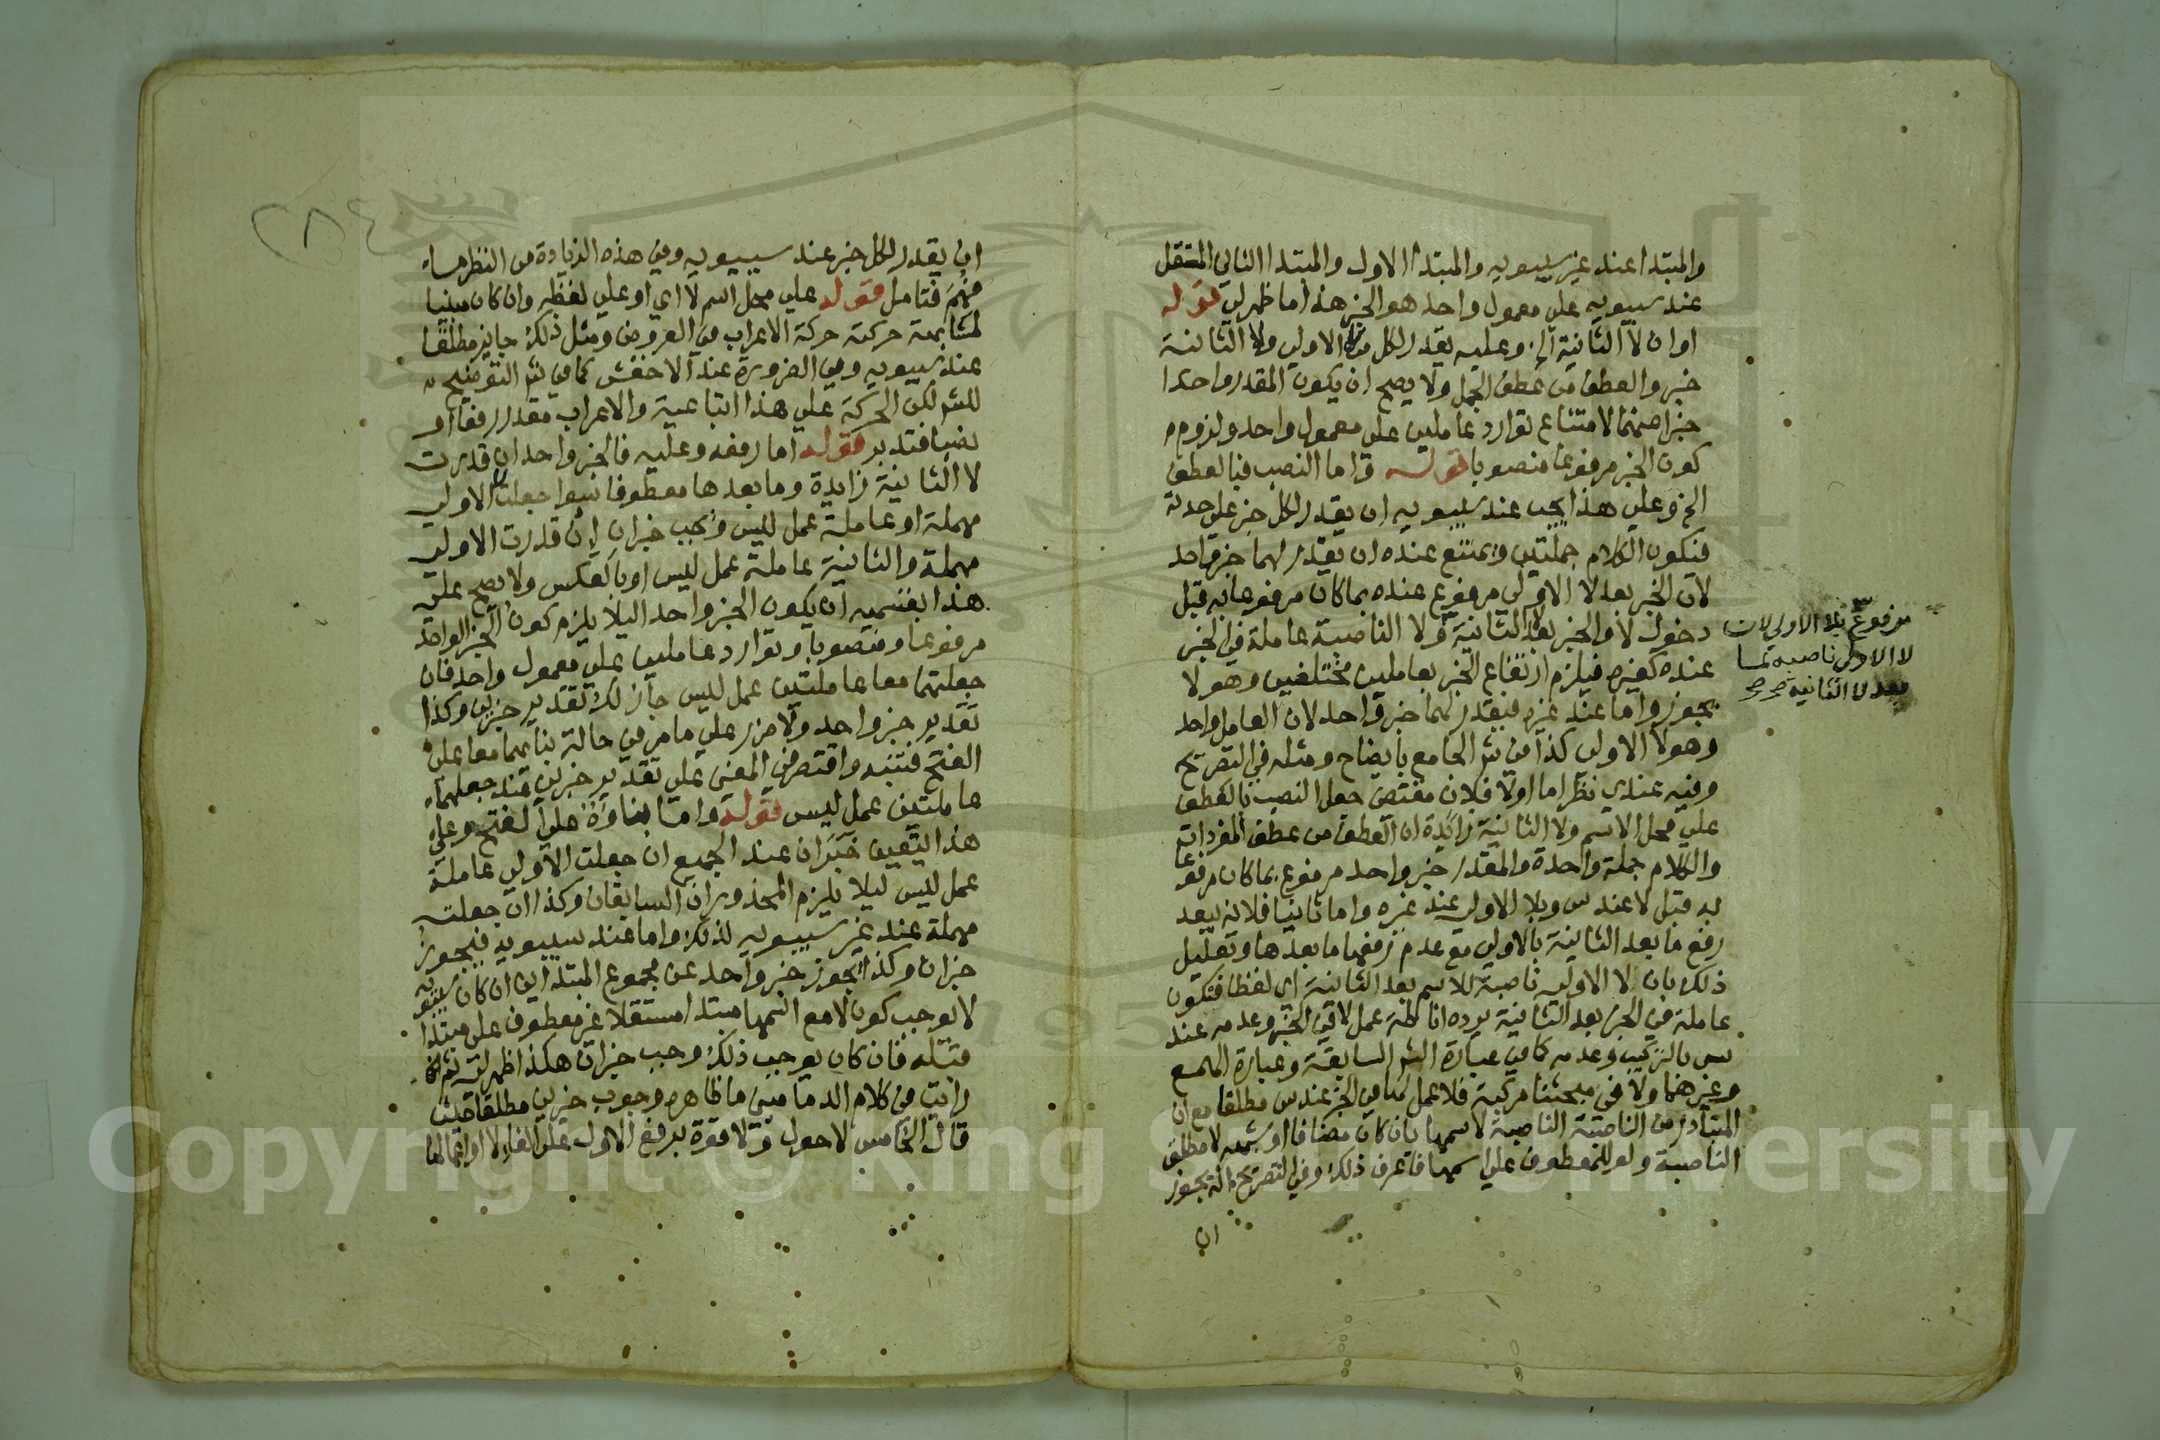 والمبتدا عند غير سيبويه والمبتدا الاول والمبتدا الثاني المستقل
عند سيبويه علي معمول واحد هو الخبر هذا ما ظهر لي قوله
او ان لا الثانية الخ وعليه يقدر لكل من لا الاولي ولا الثانية
خبر والعطف من عطف الجمل ولا يصح ان يكون المقدر واحدا
خبرا عنهما لامتناع توارد عاملين علي معمول واحد ولزوم
كون الخبر مرفوعا منصوبا قوله واما النصب فبالعطف
الخ وعلي هذا يجب عند سيبويه ان يقدر لكل خبر علي حدته
فتكون الكلام جملتين ويمتنع عنده ان يقدر لهما خبر واحد
لان الخبر بعد لا الاولي مرفوع عنده بما كان مرفوعا به قبل
دخول لا والخبر بعد لا الثانية ولا الناصبة عاملة في الخبر
عنده كغيره فيلزم ارتفاع الخبر بعاملين مختلفين وهو لا
يجوز واما عند غيره فيقدر لهما خبر واحد لان العامل واحد
وهو لا الاولي كذا في شر الجامع بايضاح ومثله في التصريح
وفيه عندي نظر اما اولا فلان مقتضي جعل النصب بالعطف
علي محل الاسم ولا الثانية زايدة ان العطف من عطف المفردات
والكلام جملة واحدة والمقدر خبر واحد مرفوع بما كان مرفوعا
به قبل لا عند س وبلا الاولي عند غيره واما ثانيا فلانه يبعد
رفع ما بعد الثانية بالاولي مع عدم رفعها ما بعدها وتعليل
ذلك بان لا الاولي ناصبة للاسم بعد الثانية اي لفظا فتكون
عاملة في الخبر بعد الثانية يرده اناطة عمل لا في الخبر وعدمه عند
س بالتركيب وعدمه كما في عبارة الشر السابقة وعبارة الهمع
وغيرهما ولا في مبحثنا مركبة فلا عمل لها في الخبر عند س مطلقا مع ان
المتبادر من الناصبة الناصبة لاسمها بان كان مضافا او شبهه لا مطلق
الناصبة ولو للمعطوف علي اسمها فاعرف ذلك وفي التصريح انه يجوز
ان
مرفوع بلا الاولي لان
لا الاولي ناصبه لما
بعد لا الثانية صح صح
٢٨٤
ان يقدر لكل خبر عند سيبويه وفي هذه الزيادة من النظر ما
فتامل قوله علي محل اسم لا اي او علي لفظه وان كان مبنيا
لمشابهة حركته حركة الاعراب في العروض ومثل ذلك جايز مطلقا
عند سيبويه وفي الضرورة عند الاخفش كما في شر التوضيح
للشر لكن الحركة علي هذا اتباعية والاعراب مقدر رفعا او
نصبا فتدبر قوله اما رفعه وعليه فالخبر واحد ان قدرت
لا الثانية زايدة وما بعدها معطوفا سوا جعلت الاولي
مهملة او عاملة عمل ليس ويجب خبران ان قدرت الاولي
مهملة والثانية عاملة عمل ليس او بالعكس ولا يصح علي
هذا بقسميه ان يكون الخبر واحد اليلا يلزم كون الخبر الواحد
مرفوعا ومنصوبا وتوارد عاملين علي معمول واحد فان
جعلتهما معا عاملتين عمل ليس جاز لك تقدير خبرين وكذا
تقدير خبر واحد ولا ضرر علي ما مر في حالة بنائهما معا علي
الفتح فتنبه واقتصر في المغني علي تقدير خبرين عند جعلهما
عاملتين عمل ليس قوله واما بناؤه علي الفتح وعلي
هذا يتعين خبران عند الجميع ان جعلت الاولي عاملة
عمل ليس ليلا يلزم المحذوران السابقان وكذا ان جعلت
مهملة عند غير سيبويه لذلك واما عند سيبويه فيجوز
خبران وكذا يجوز خبر واحد عن مجموع المبتداين ان كان سيبويه
لا يوجب كون لا مع اسمها مبتدا مستقلا غير معطوف علي مبتدا
قبله فان كان يوجب ذلك وجب خبران هكذا ظهر لي ثم
رايت في كلام الدماميني ما ظاهره وجوب خبرين مطلقا حيث
قال الخامس لا حول ولا قوة برفع الاول علي الغاء لا او اعمالها